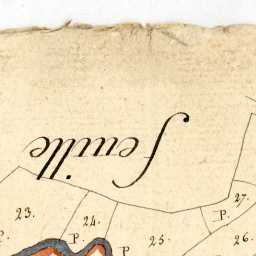 feuille
23.
24.
27.
P.
P.
P.
P.
25.
26.